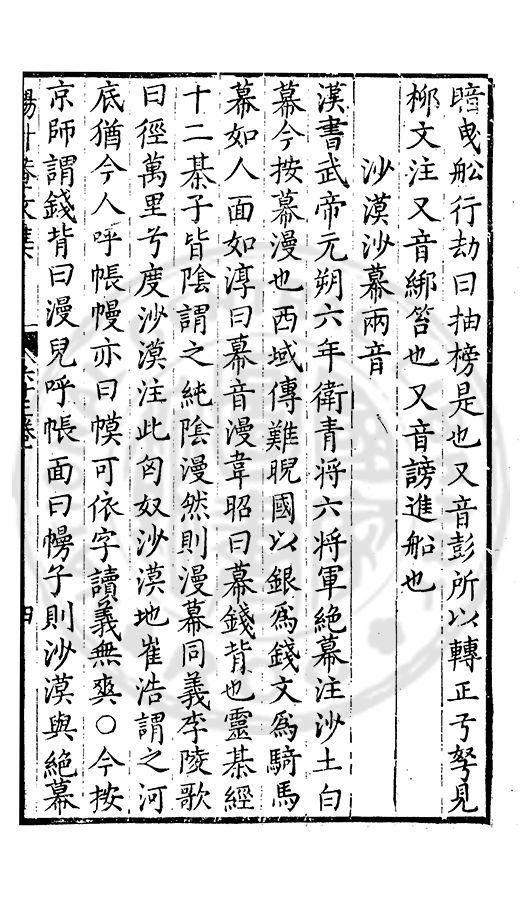 暗曳舩行劫曰抽榜是也又音彭所以轉正弓弩見
柳文注又音綁笞也又音謗進船也
沙漠沙幕兩音
漢書武帝元朔六年衛青将六将軍絶幕注沙土曰
幕今按幕漫也西域傳難睨國以銀爲錢文爲騎馬
幕如人面如淳曰幕音漫韋昭曰幕錢背也靈棊經
十二棊子皆陰謂之純陰漫然則漫幕同義李陵歌
曰徑萬里兮度沙漠注此匈奴沙漠地崔浩謂之河
底猶今人呼帳幔亦曰幙可依字讀義無爽○今按
京師謂錢背曰漫兒呼帳面曰幔子則沙漠與絶幕
四